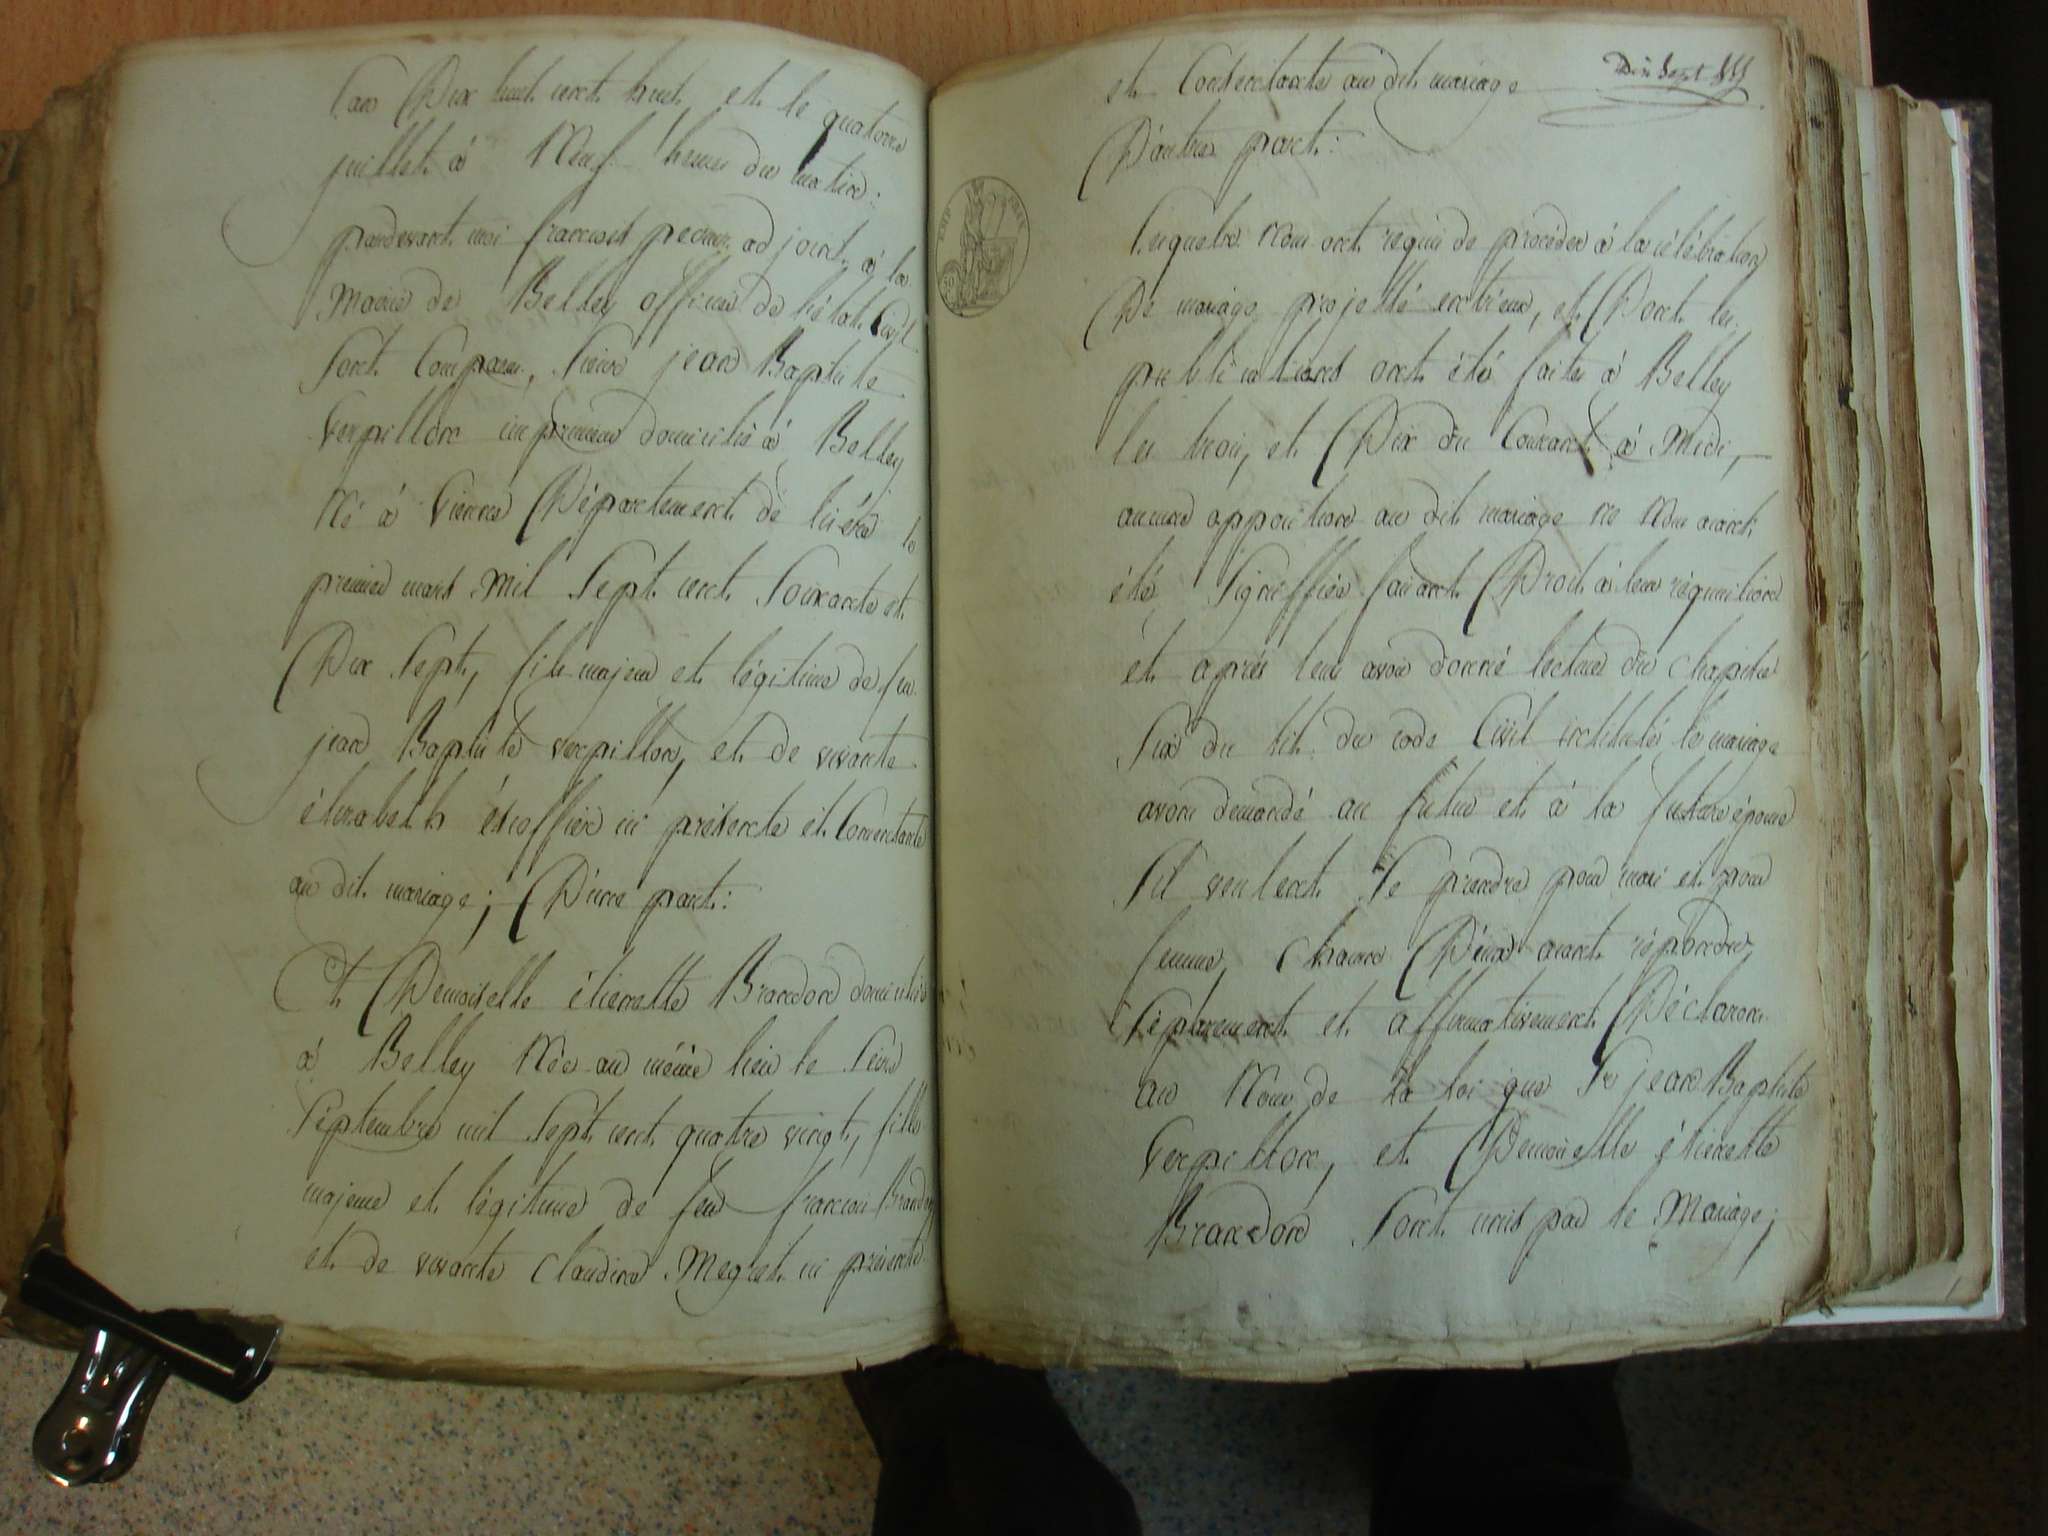 l'an Dix huit cent huit et le quatorze
juillet à Neuf heures du matin:
pardevant moi francois adjoint à la
Mairie de Belley officier de l'état Civil
Sont Comparus, Sieur jean Baptiste
Verpillon imprimeur domicilié à Belley
Né à Vienne Département de l'isére le
premier mars Mil Sept cent Soixante et
Dix Sept, fils majeur et légitime de feu
jean Baptiste verpillon, et de vivante
élizabeth ici présente et Consentante
au dit mariage; D'une part:
Et Demoiselle étiennette Brandon domiciliée
à Belley Née au même lieu le
Septembre mil Sept cent quatre vingt, fille
majeure et légitime de feu francois Brandon
et de vivante claudine Megret ici présente
Dix Sept
et Consentante au dit mariage
D'autre part:
Lesquels Nous ont requis de procéder à la célébration
De mariage projetté entr'eux, et Dont les
publications ont été faites à Belley
les trois, et Dix du Courant à Midi,
aucune opposition au dit mariage ne Nous aiant
été Signiffiée faisant Droit à leur réquisition
et aprés leur avoir donné lecture du chapitre
Six du tit. du code Civil intitulé le mariage
avons demandé au futur et à la future épouse
S'il veulent Se prendre pour mari et pour
femme, chacun D'eux aiant répondu,
Séparement et affirmativement Déclarons
au Nom de la loi que Sr jean Baptiste
Verpillon, et Demoiselle étiennette
Brandon Sont unis par le Mariage;